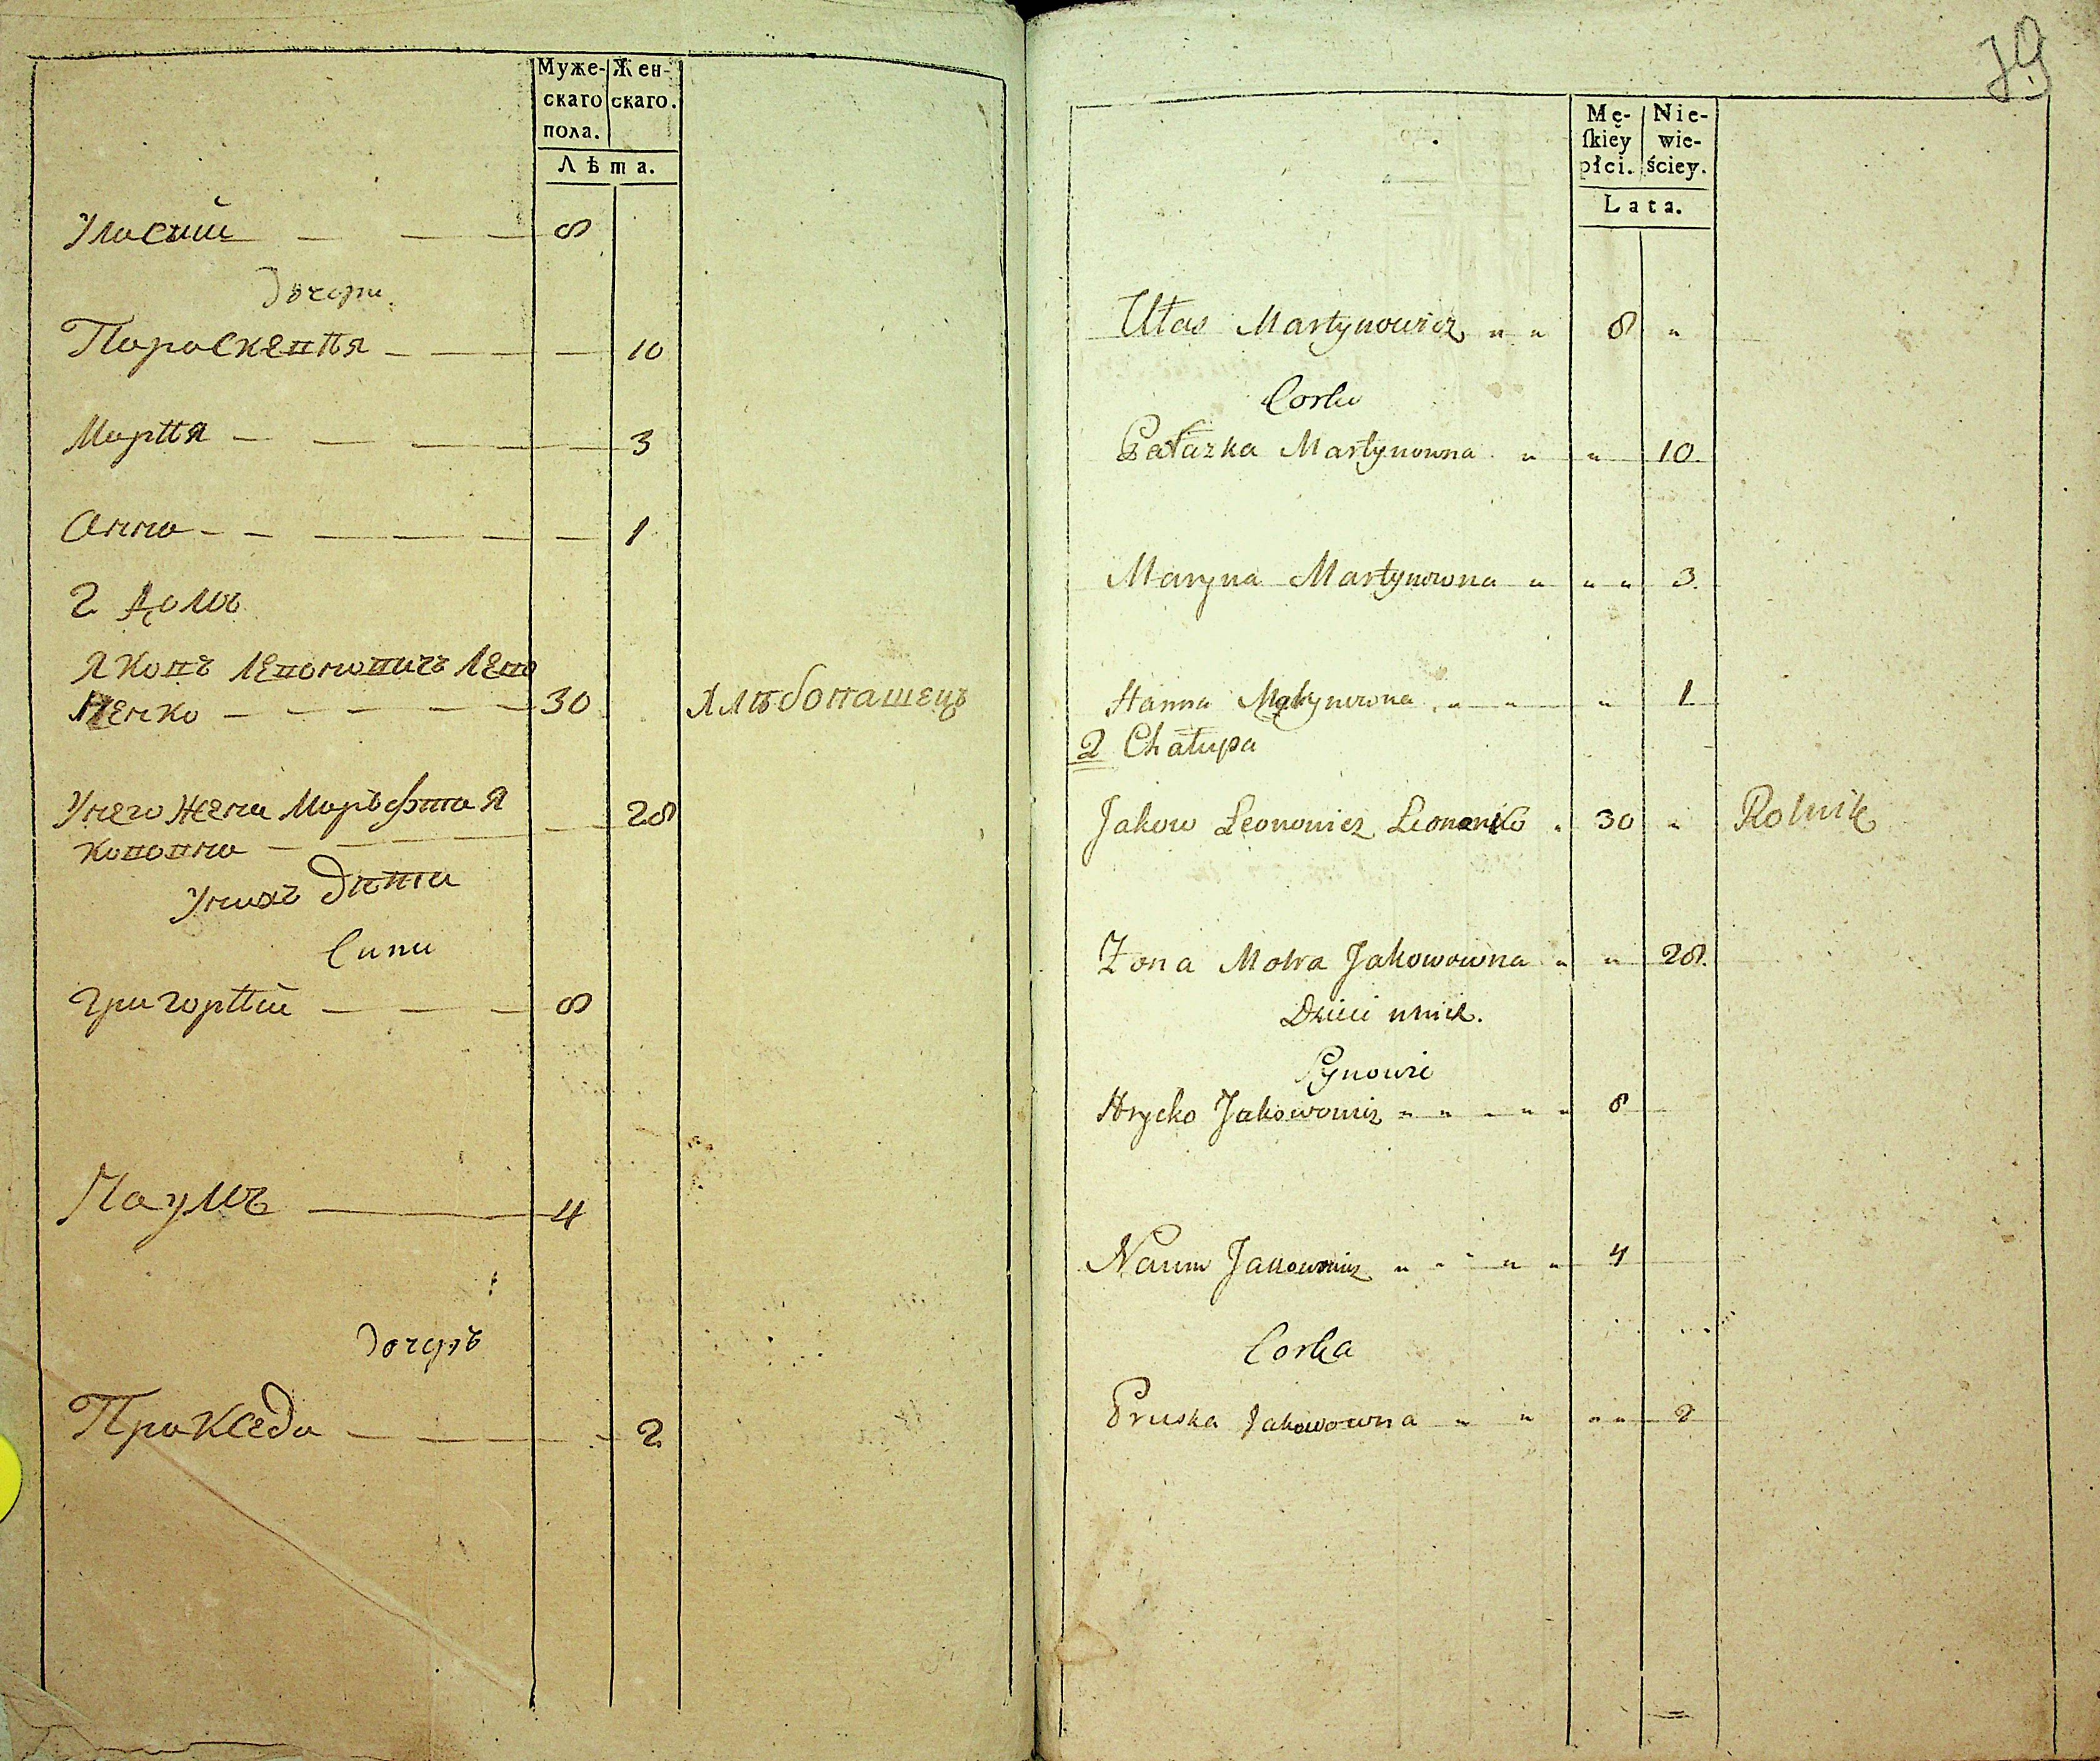 Муже-
скаго
пола.
Жен-
скаго.
Лѣта.
Уласий — — — 8
Дочери.
Параскевия — — — — 10
Мария — — — — 3
Анна — — — — — — 1
2 Домъ
Яковъ Левоновичъ Лево
ненко — — — — — 30 Хлѣбопашецъ
Унего жена Марѳфта Я 28
кововна — — — —
Унихъ дѣти
Сини
Григорий — — — 8
Наумъ — 4
Дочерь
Пракседа — — — — - 2
79
Mę-
ſkiey
płci.
Nie-
wie-
ściey.
Lata.
Ułas Martynowicz " " 8 "
Corki
Pałazka Martynowna " " 10
Maryna Martynowna " " " 3.
Hanna Martynowna . " " " 1
2 Chałupa
Jakow Leonowicz Leonenko " 30 " Rolnik
Żona Motra Jakowowna " " 28.
Dzieci unich.
Synowie
Hrycko Jakowowicz " " " " " 8
Naum Jakowowicz " " " " 4
Corka
Pruska Jakowowna " " " " 2